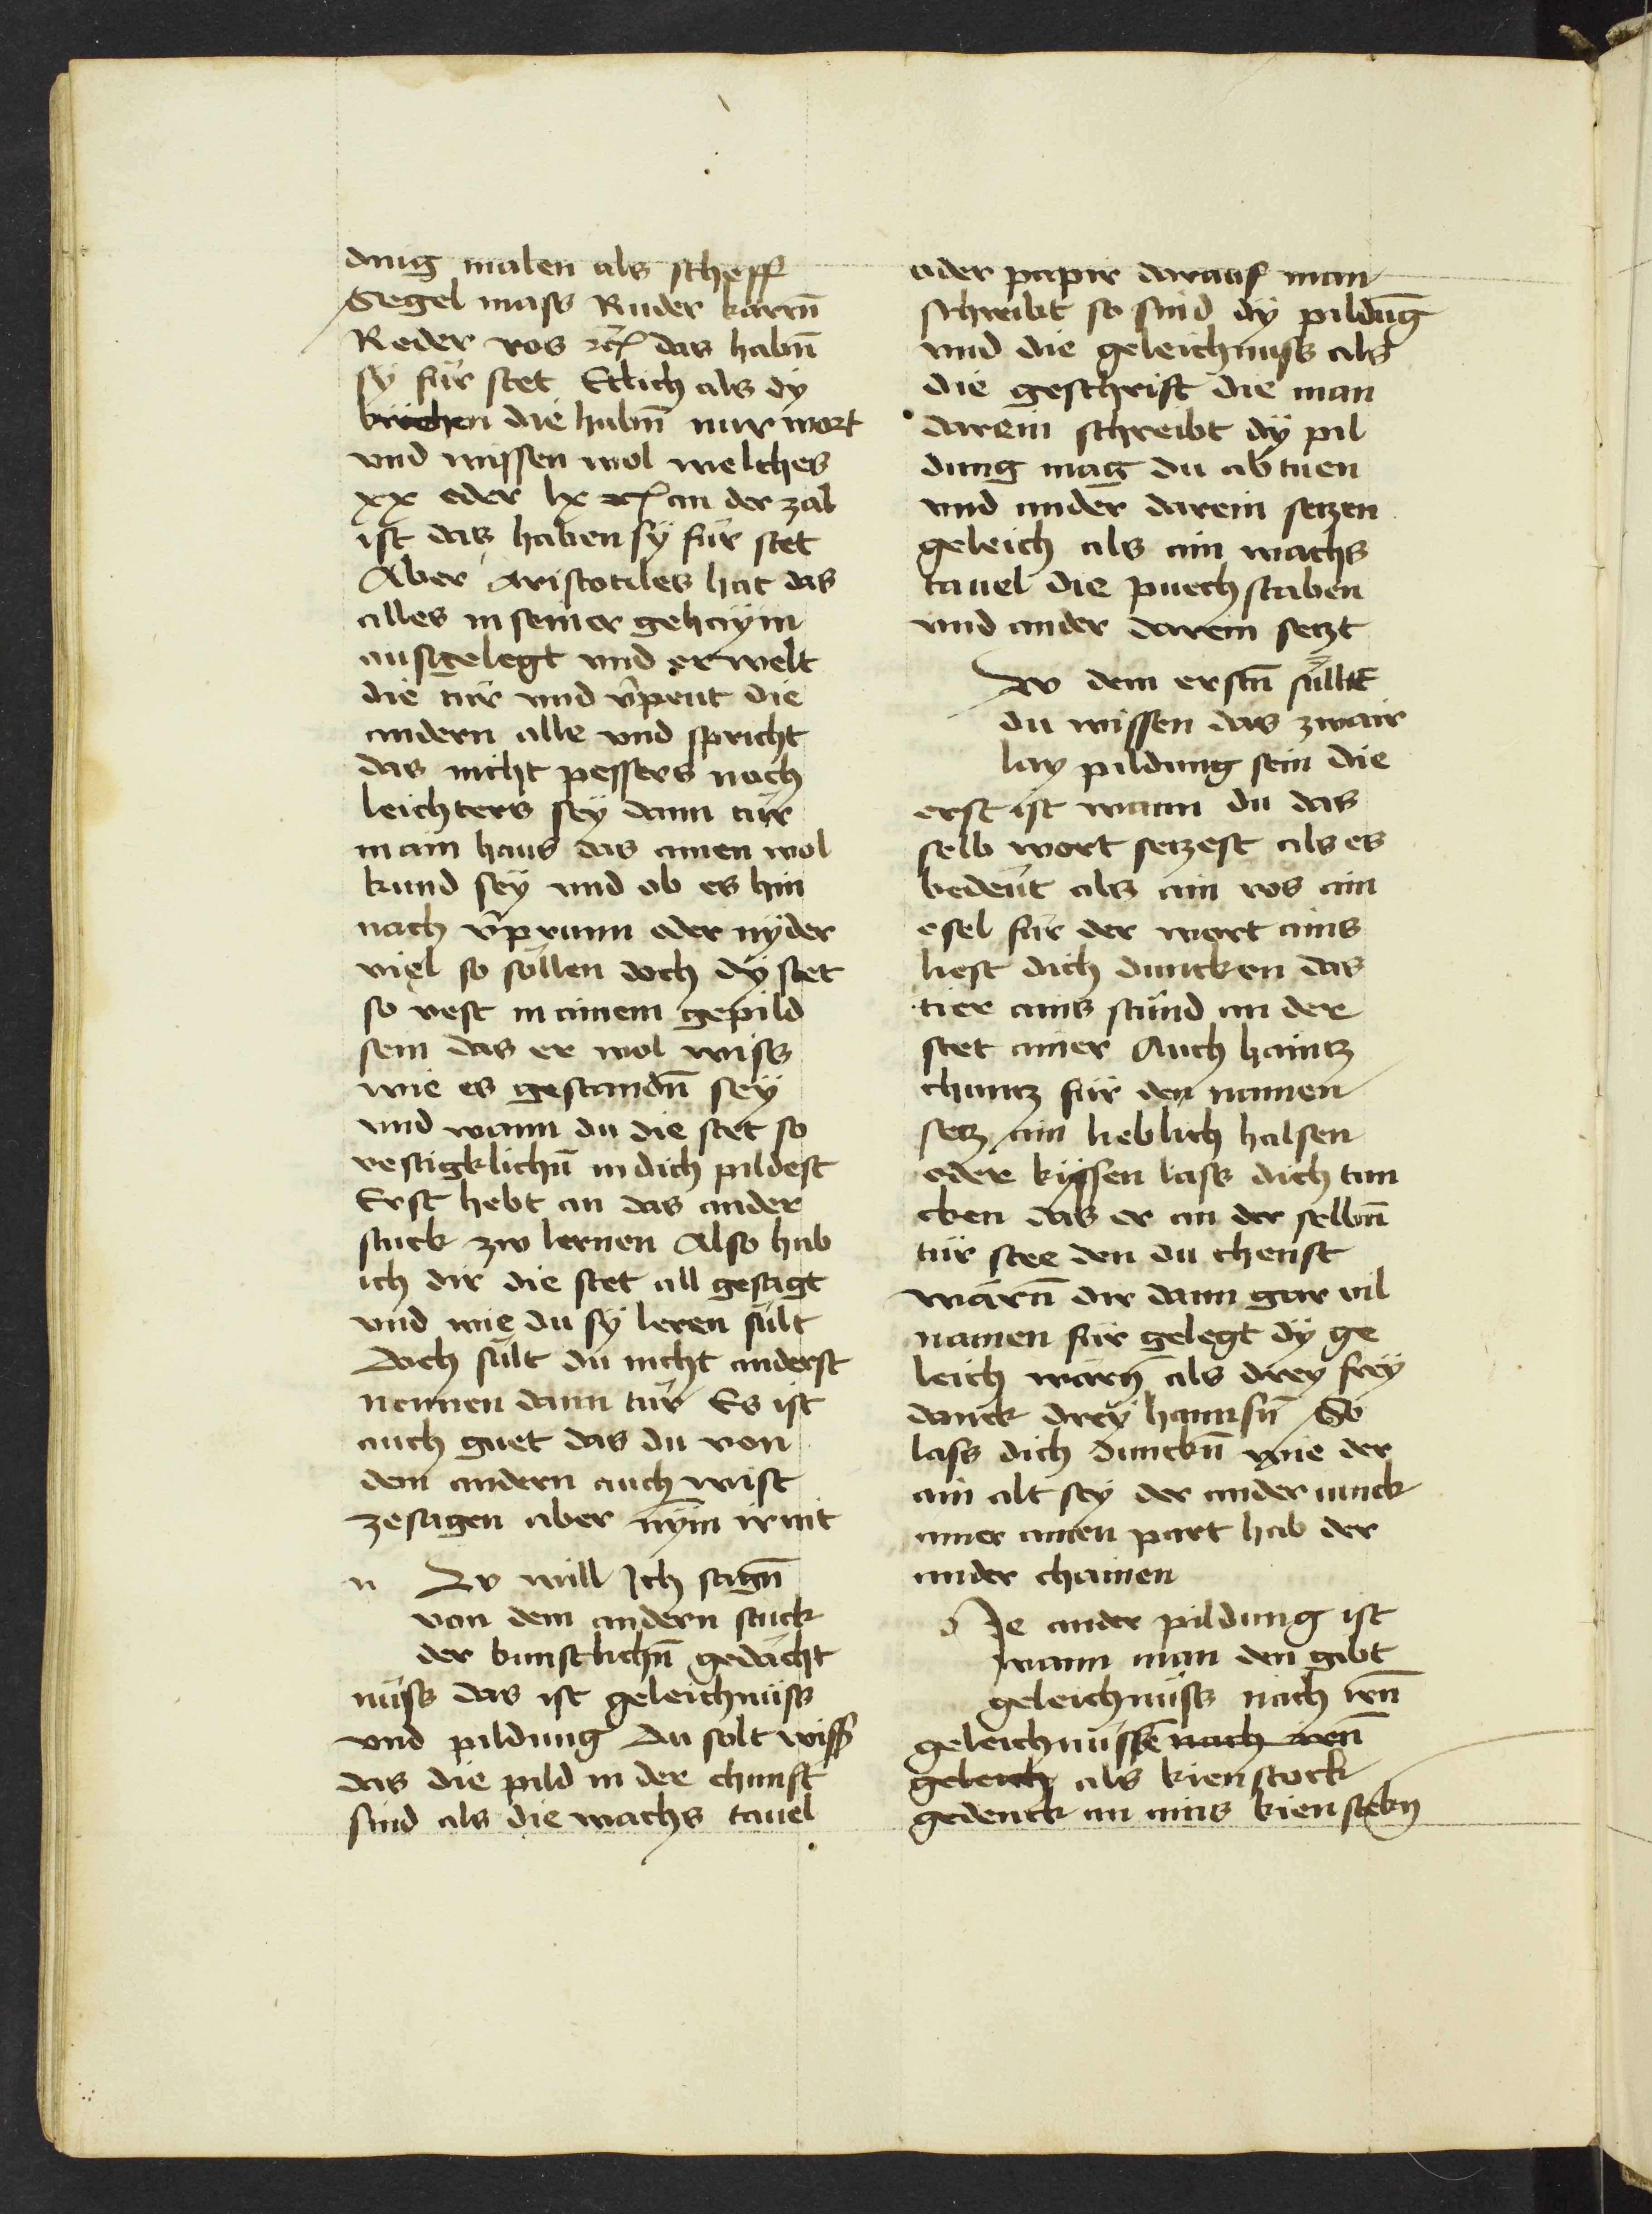 ding malen als scheff
Segel mass Ruder karrn̄
Reder ros ꝛc̃ das habn̄
sy für stet Etlich als dÿ
brüchen die habn̄ nur wort
vnd wissen wol welches
xx oder lx ꝛc̃ an der zal
ist das haben sÿ für stet
Aber Aristotiles hat das
alles in seiner gehaÿm
ausgelegt vnd erwelt
die tür vnd v̄peut die
andern alle vnd spricht
das nicht pessers noch
leichters seÿ dann tür
in ain haus das ainen wol
kund seÿ vnd ob es hin
nach v̄prunn oder nÿder
viel so söllen doch dÿ stet
so vest in ainem gepild
sein das er wol wiss
wie es gestandn̄ seÿ
vnd wann du die stet so
vestigklichn̄ in dich pildest
Erst hebt an das ander
stuck zw lernen Also hab
ich dir die stet all gesagt
vnd wie du sÿ leren sült
Doch sült du nicht anderst
nennen dann tür Es ist
auch guet das du von
dem andern auch wist
zesagen aber nÿm ir nit
n Zv will Ich sagn̄
von dem andern stuck
der kunstlichn̄ gedächt
nüss das ist geleichnüss
vnd pildung du solt wiss̄
das die pild in der chunst
sind als die wachs tauel
oder papir darauf man
schreibt so sind dÿ pildūg
vnd die geleichnuss als
die geschrift die man
darein schreibt dÿ pil
dung mag du ab tuen
vnd ander darein setzen
geleich als ain wachs
tauel die puechstaben
vnd ander darein setzt
Zv dem erstn̄ süllt
du wissen das zwair
lay pildung sein die
erst ist wann du das
selb wort setzest als es
bedeüt als ain ros ain
esel für der wort ains
liest dich duncken das
tier ains stünd an der
stet ainer Auch haintz
chuntz für den namen
setz ain lieblich halsen
oder küssen lass dich tun
cken das er an der selbn̄
tür stee den du chenst
wärn̄ dir dann gar vil
namen für gelegt dÿ ge
leich wärn̄ als drey freÿ
danck dreÿ hannsn̄ So
lass dich dunckn̄ wie der
ain alt seÿ der ander iunck
ainer ainen part hab der
ander chainen
d Ie ander pildung ist
wann man den gibt
geleichnüss nach irn̄
geleichnüssē nach irn̄
geleich als kienstock
gedenck an ains kien stekn̄